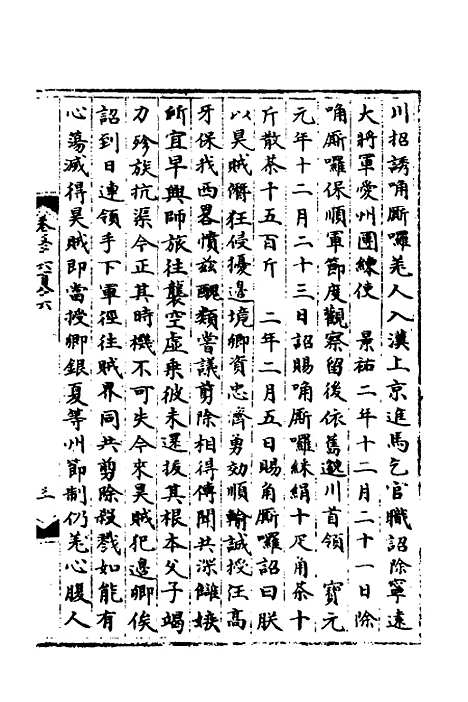 川招誘唃厮囉羌人入漢上京進馬乞官職詔除寧遠
大將軍愛州團練使　景祐二年十二月二十一日除
唃厮囉保順軍節度觀察留後依舊邈川首領　寶元
元年十二月二十三日詔賜唃厮囉綵絹十疋角茶十
斤散茶十五百斤　二年二月五日賜角厮囉詔曰朕
以昊賊僭狂侵擾邊境卿資忠濟勇効順輸誠授任高
牙保我西畧憤兹醜類嘗議剪除相得傳聞共深雠嫉
所宜早興師旅往襲空虚乘彼未還拔其根本父子竭
力殄族抗渠今正其時機不可失今來昊賊犯邊卿俟
詔到日連領手下軍徑往賊界同共剪除殺戮如能有
心蕩滅得昊賊即當授卿銀夏等州節制仍羌心腹人
三